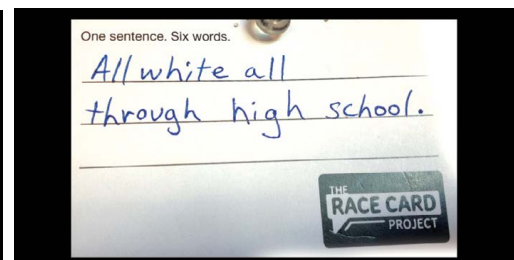 One sentence. Six words.
All white all
through high school.
THE
RACE CARD
PROJECT